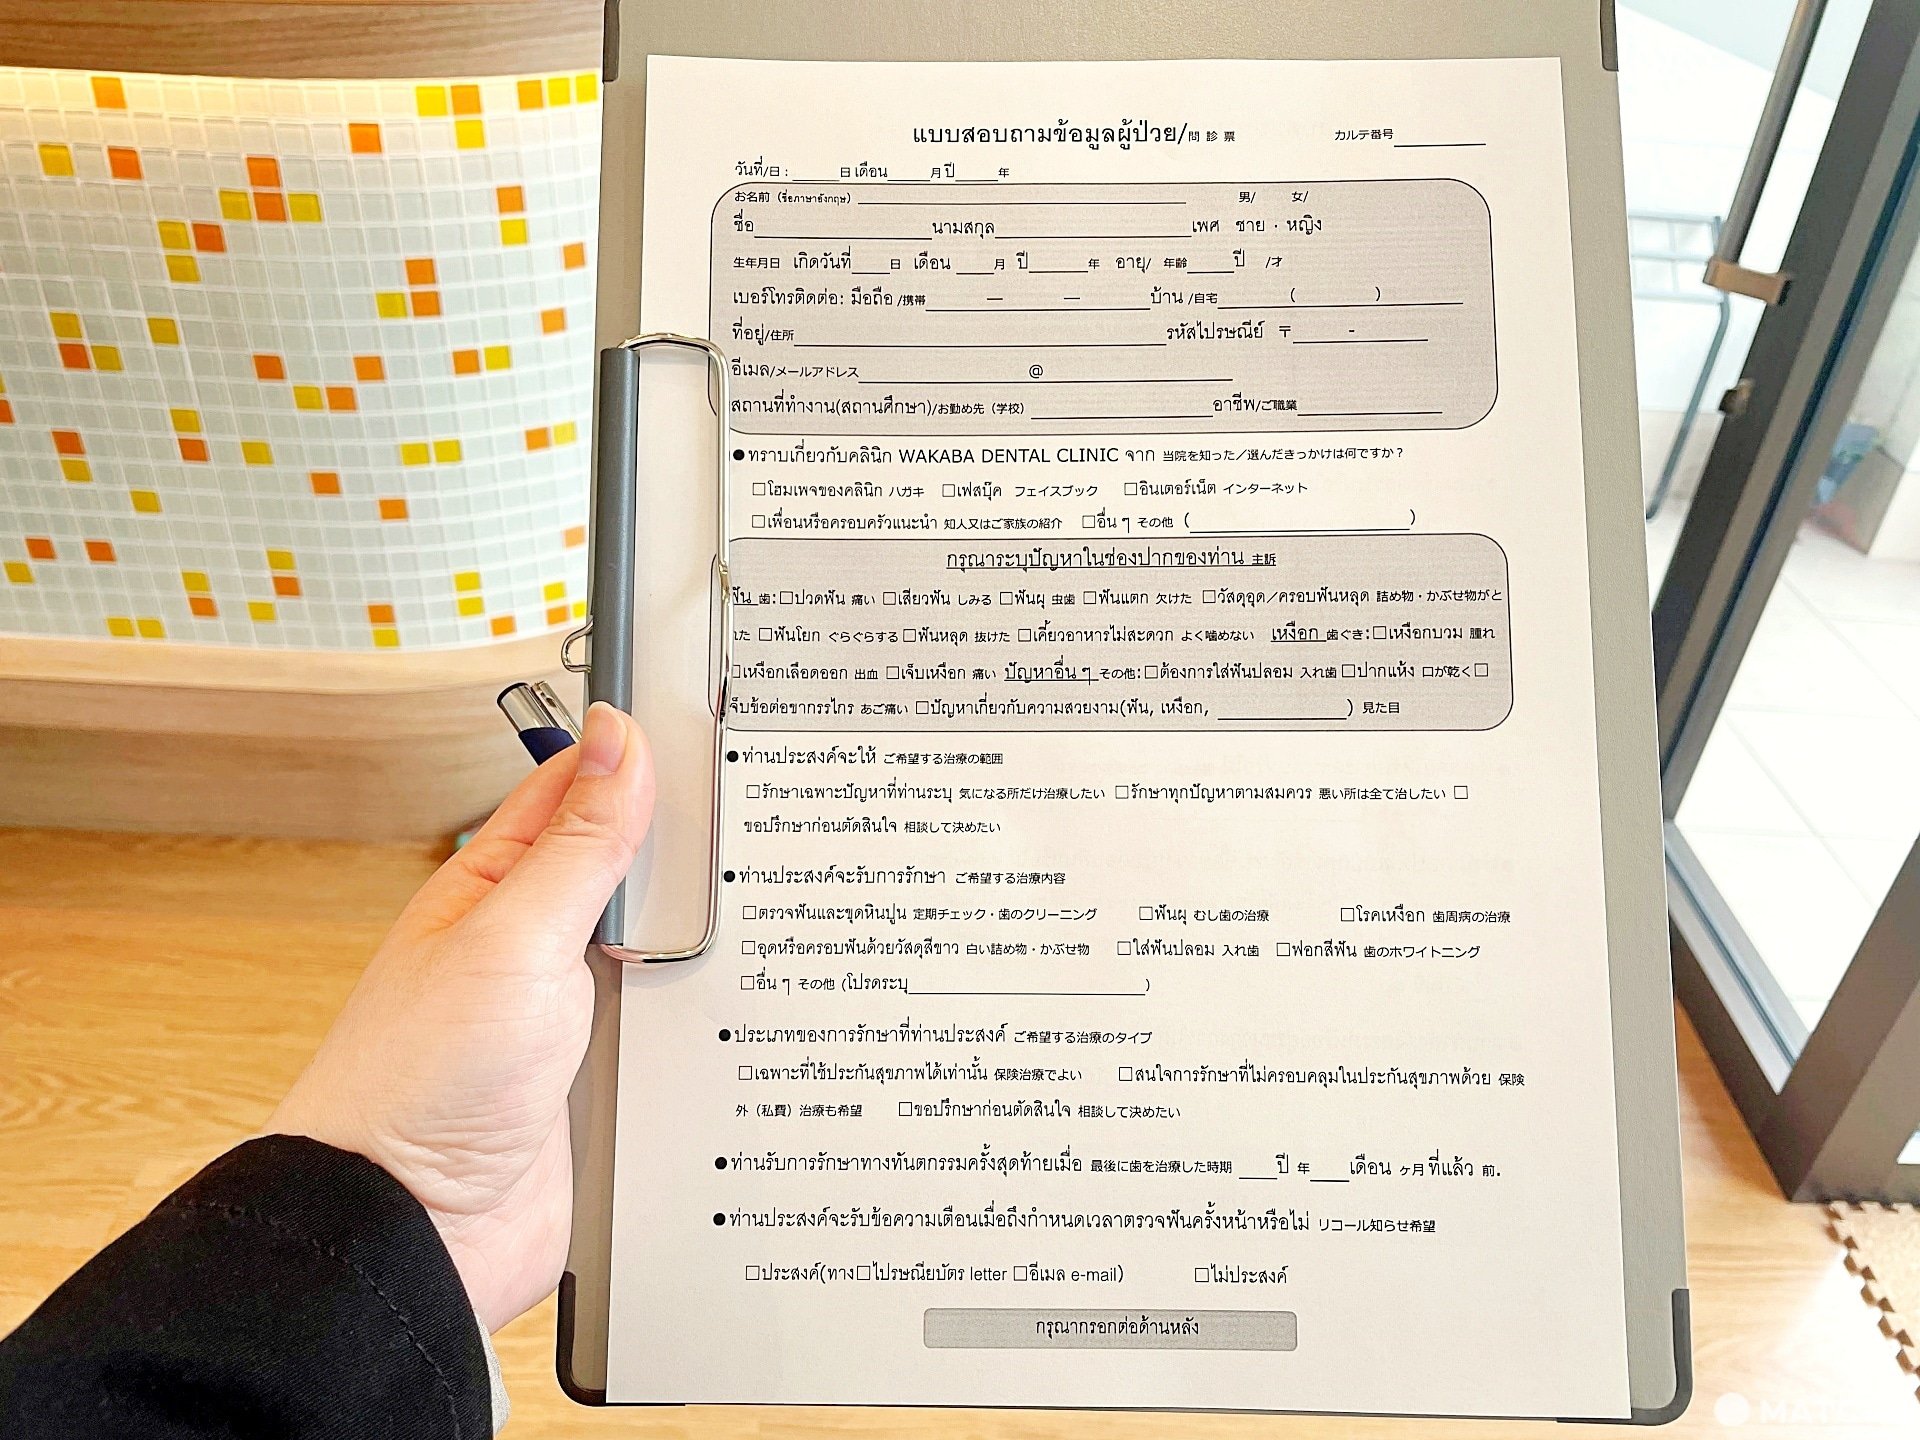 แบบสอบถามข้อมูลผู้ป่วย/問 診 票 カルテ番号
วันที่/日: ______日 เดือน______月 ปี______年
お名前 (ชื่อภาษาอังกฤษ) ____________ 男/ 女/
ชื่อ____________นามสกุล____________เพศ ชาย · หญิง
生年月日 เกิดวันที่____日 เดือน ____月 ปี______年 อายุ/ 年齢_____ปี /才
เบอร์โทรติดต่อ: มือถือ /携帯______—______—______บ้าน /自宅______( )______
ที่อยู่/住所____________รหัสไปรษณีย์ 〒______-______
อีเมล/メールアドレス____________@____________
สถานที่ทำงาน(สถานศึกษา)/お勤め先 (学校) ____________อาชีพ/ご職業____________
●ทราบเกี่ยวกับคลินิก WAKABA DENTAL CLINIC จาก 当院を知った／選んだきっかけは何ですか？
□โฮมเพจของคลินิก ハガキ □เฟสบุ๊ค フェイスブック □อินเตอร์เน็ต インターネット
□เพื่อนหรือครอบครัวแนะนำ 知人又はご家族の紹介 □อื่น ๆ その他 (____________)
กรุณาระบุปัญหาในช่องปากของท่าน 主訴
ฟัน 歯:□ปวดฟัน 痛い □เสียวฟัน しみる □ฟันผุ 虫歯 □ฟันแตก 欠けた □วัสดุอุด／ครอบฟันหลุด 詰め物・かぶせ物がと
れた □ฟันโยก ぐらぐらする □ฟันหลุด 抜けた □เคี้ยวอาหารไม่สะดวก よく噛めない เหงือก 歯ぐき:□เหงือกบวม 腫れ
□เหงือกเลือดออก 出血 □เจ็บเหงือก 痛い ปัญหาอื่น ๆ その他:□ต้องการใส่ฟันปลอม 入れ歯 □ปากแห้ง 口が乾く □
เจ็บข้อต่อขากรรไกร あご痛い □ปัญหาเกี่ยวกับความสวยงาม(ฟัน, เหงือก, ____________) 見た目
●ท่านประสงค์จะให้ ご希望する治療の範囲
□รักษาเฉพาะปัญหาที่ท่านระบุ 気になる所だけ治療したい □รักษาทุกปัญหาตามสมควร 悪い所は全て治したい □
ขอปรึกษาก่อนตัดสินใจ 相談して決めたい
●ท่านประสงค์จะรับการรักษา ご希望する治療内容
□ตรวจฟันและขูดหินปูน 定期チェック・歯のクリーニング □ฟันผุ むし歯の治療 □โรคเหงือก 歯周病の治療
□อุดหรือครอบฟันด้วยวัสดุสีขาว 白い詰め物・かぶせ物 □ใส่ฟันปลอม 入れ歯 □ฟอกสีฟัน 歯のホワイトニング
□อื่น ๆ その他 (โปรดระบุ____________)
●ประเภทของการรักษาที่ท่านประสงค์ ご希望する治療のタイプ
□เฉพาะที่ใช้ประกันสุขภาพได้เท่านั้น 保険治療でよい □สนใจการรักษาที่ไม่ครอบคลุมในประกันสุขภาพด้วย 保険
外 (私費) 治療も希望 □ขอปรึกษาก่อนตัดสินใจ 相談して決めたい
●ท่านรับการรักษาทางทันตกรรมครั้งสุดท้ายเมื่อ 最後に歯を治療した時期 ____ปี 年____เดือน ヶ月 ที่แล้ว 前.
●ท่านประสงค์จะรับข้อความเตือนเมื่อถึงกำหนดเวลาตรวจฟันครั้งหน้าหรือไม่ リコール知らせ希望
□ประสงค์(ทาง□ไปรษณียบัตร letter □อีเมล e-mail) □ไม่ประสงค์
กรุณากรอกต่อด้านหลัง